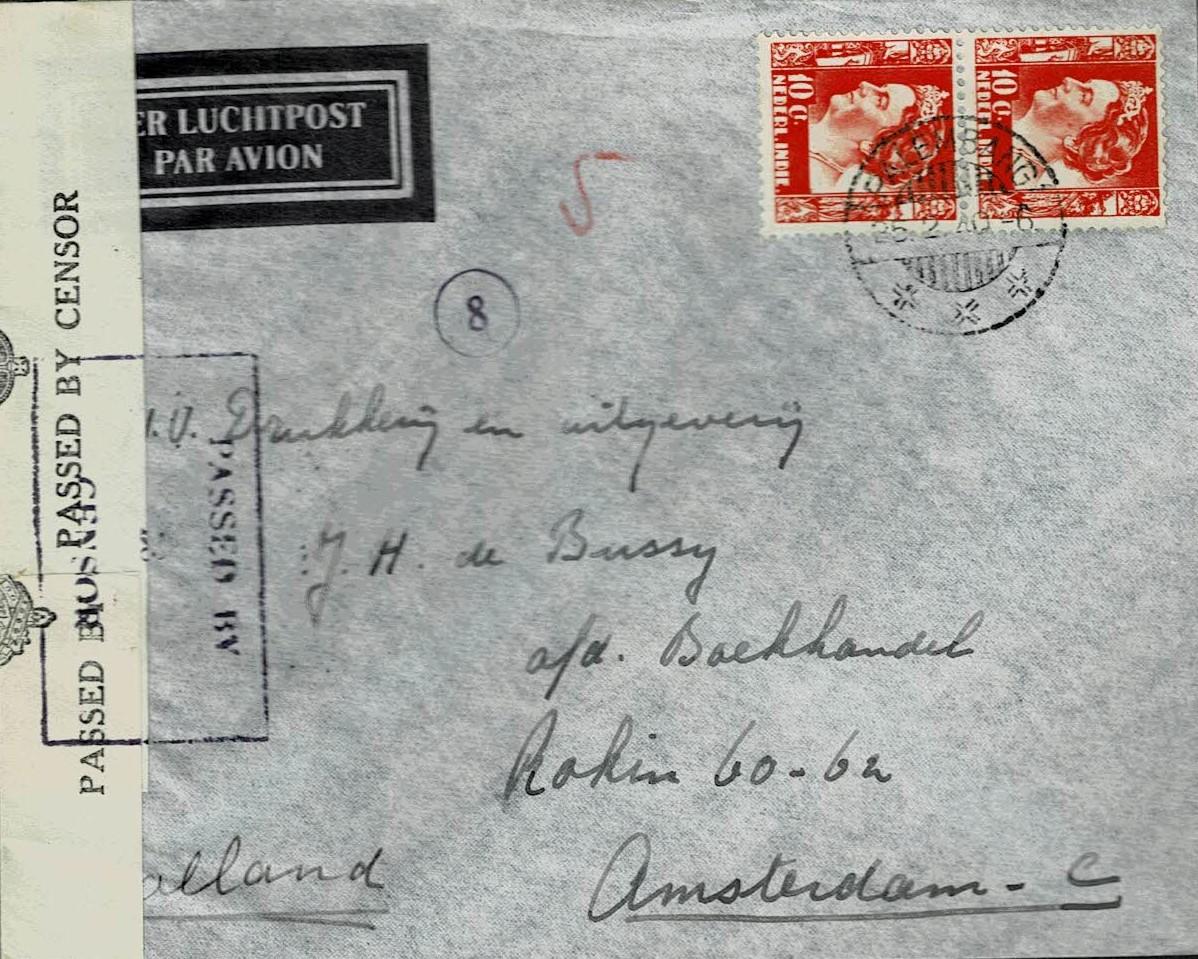 ER LUCHTPOST
PAR AVION
10 C.
NEDERL. INDIË
10 C.
NEDERL. INDIË
PALEMBANG
25.2.40.-6
5
8
PASSED BY CENSOR
PASSED BY
PASSED BY
CENSOR
.V. Drukkerij en uitgeverij
J. H. de Bussy
a/d. Boekhandel
Rokin 60-62
Amsterdam - C
olland